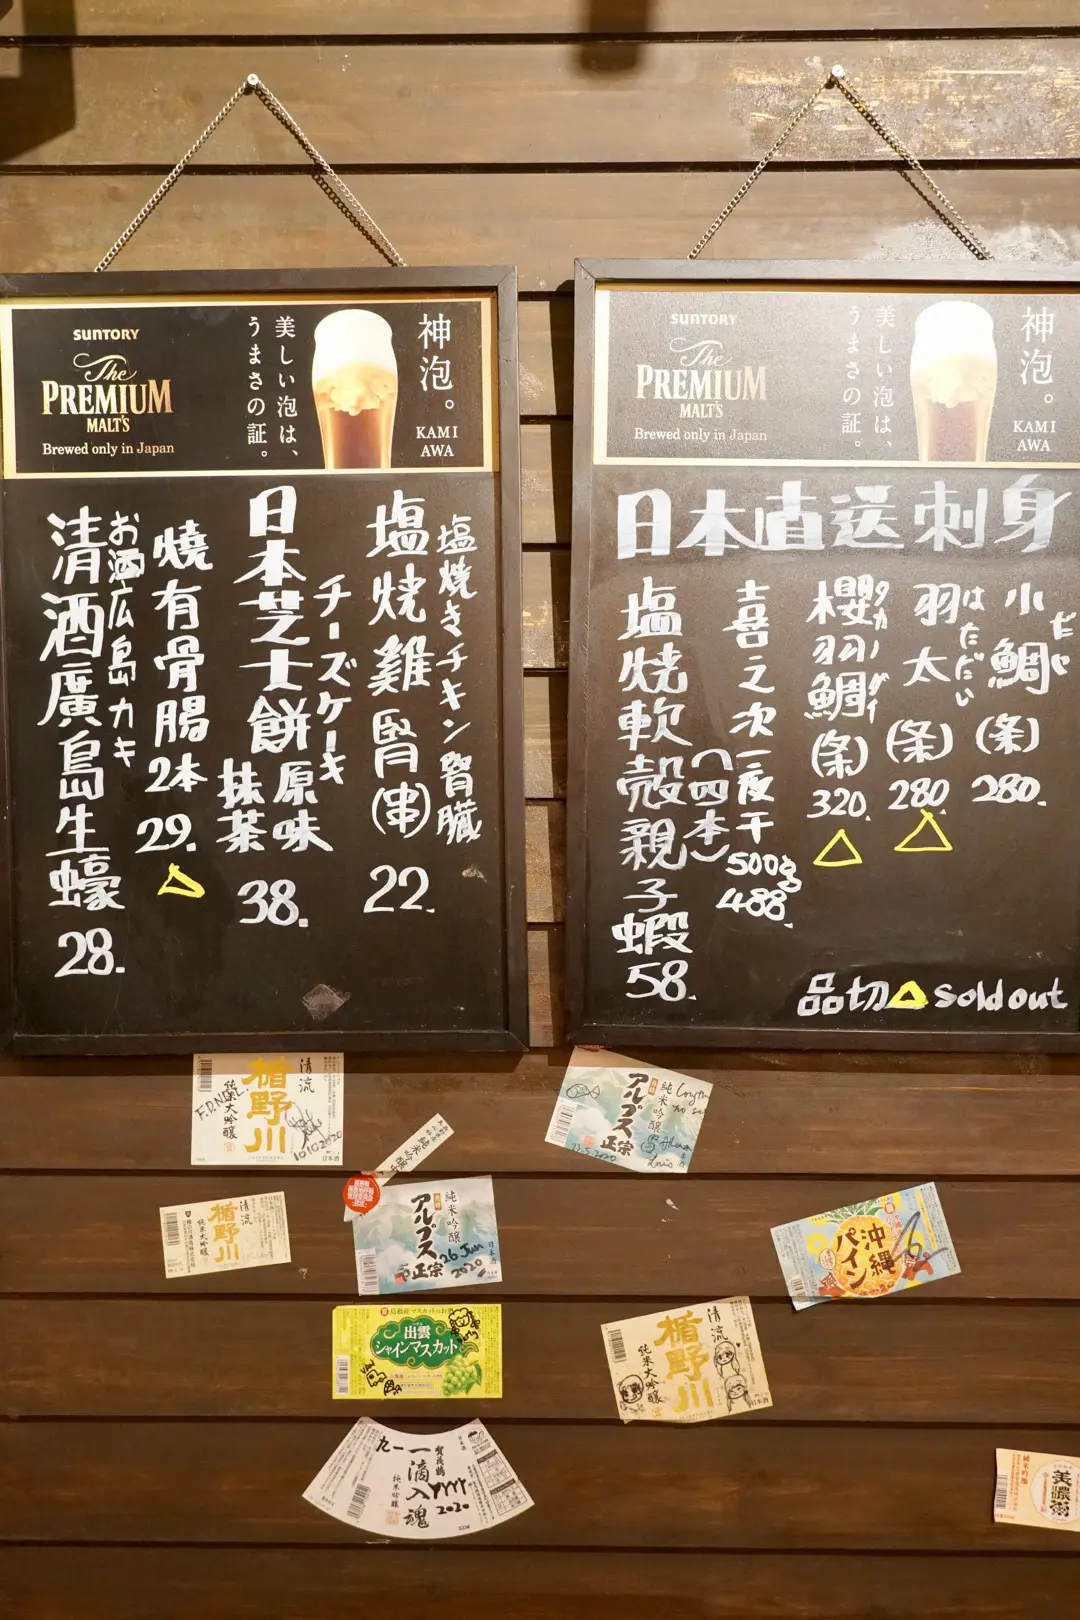 SUNTORY
The
PREMIUM
MALT'S
Brewed only in Japan
美しい泡は、
うまさの証。
神泡。
KAMI
AWA
塩焼きチキン腎臓
塩焼雞腎(串)
22.
チーズケーキ
日本芝士餅
原味
抹茶
38.
燒有骨腸
2本
29.
お酒広島カキ
清酒廣島生蠔
28.
SUNTORY
The
PREMIUM
MALT'S
Brewed only in Japan
美しい泡は、
うまさの証。
神泡。
KAMI
AWA
日本直送刺身
小鯛
(条)
280.
はただい
羽太
(条)
280
櫻羽鯛
(条)
320.
喜之次一夜干
500g
488.
塩焼軟殻親子蝦
(四本)
58.
品切 △ Sold out
清流
楯野川
純米大吟醸
F.D.N.L.
10102020
日本酒
純米吟醸
アルプス
正宗
13.5.2020
清流
楯野川
純米大吟醸
純米吟醸
純米吟醸
アルプス
正宗
日本酒
26 Jun
2020
沖縄
パイン
島根産マスカットのお酒
出雲
シャインマスカット
清流
楯野川
純米大吟醸
日本酒
日本酒
賀茂鶴
一滴入魂
純米吟醸
九一
YYYY
2020
純米吟醸
美濃